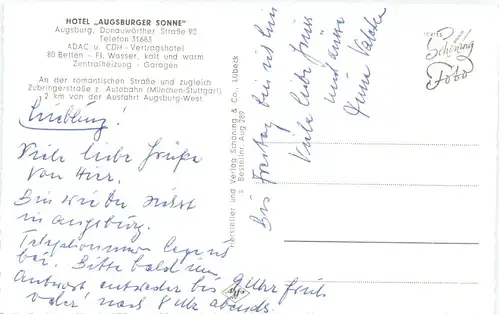 HOTEL „AUGSBURGER SONNE"
Augsburg, Donauwörther Straße 90
Telefon 31683
ADAC u. CDH - Vertragshotel
80 Betten - Fl. Wasser, kalt und warm
Zentralheizung - Garagen
An der romantischen Straße und zugleich
Zubringerstraße z. Autobahn (München-Stuttgart)
2 km von der Ausfahrt Augsburg-West.
Liebling!
Viele liebe Grüße
von Hier.
Bin wieder zurück
in Augsburg.
Telefonnummer liegend
bei. Bitte bald um
Antwort entweder bis 9 Uhr früh
oder nach 8 Uhr abends.
Bis Freitag bin ich hier
Viele liebe Grüße
und Küsse
Deine
Hersteller und Verlag Schöning & Co., Lübeck
Bestellnr. Aug 289
echtes
Schöning
Foto